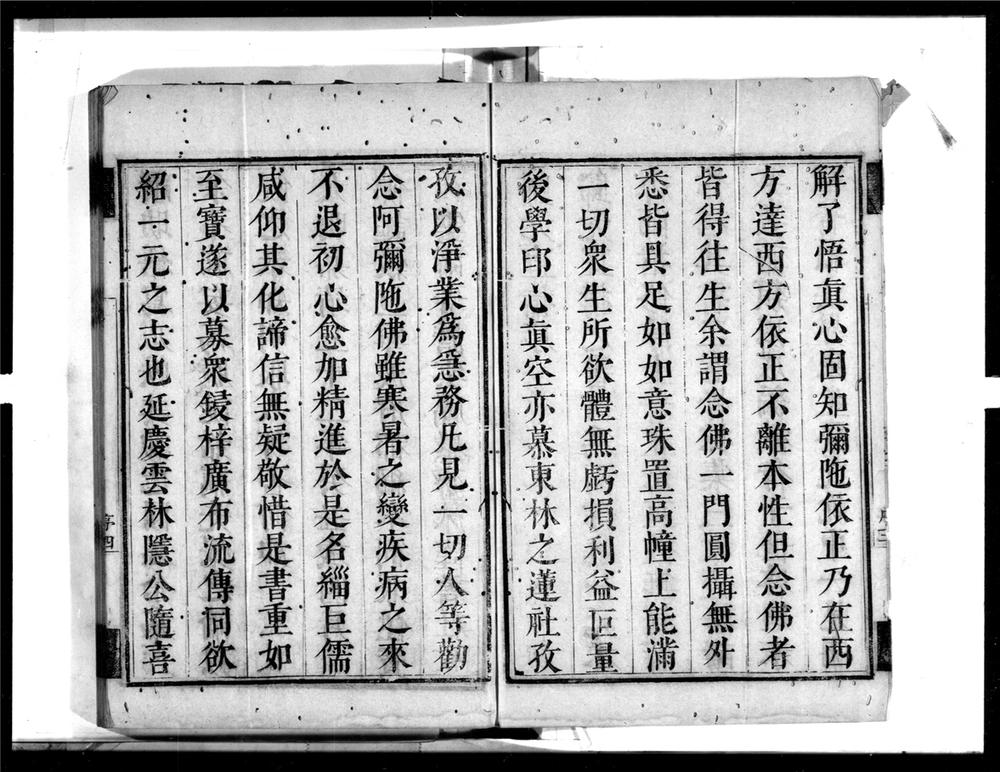 解了悟眞心固知彌陁依正乃在西
方達西方依正不離本性但念佛者
皆得往生余謂念佛一門圓攝無外
悉皆具足如如意珠置高幢上能滿
一切衆生所欲體無虧損利益叵量
後學印心眞空亦慕東林之蓮社孜
孜以淨業爲急務凡見一切人等勸
念阿彌陁佛雖寒暑之變疾病之來
不退初心愈加精進於是名緇巨儒
咸仰其化諦信無疑敬惜是書重如
至寶遂以募衆鋟梓廣布流傳同欲
紹一元之志也延慶雲林隱公隨喜
序四